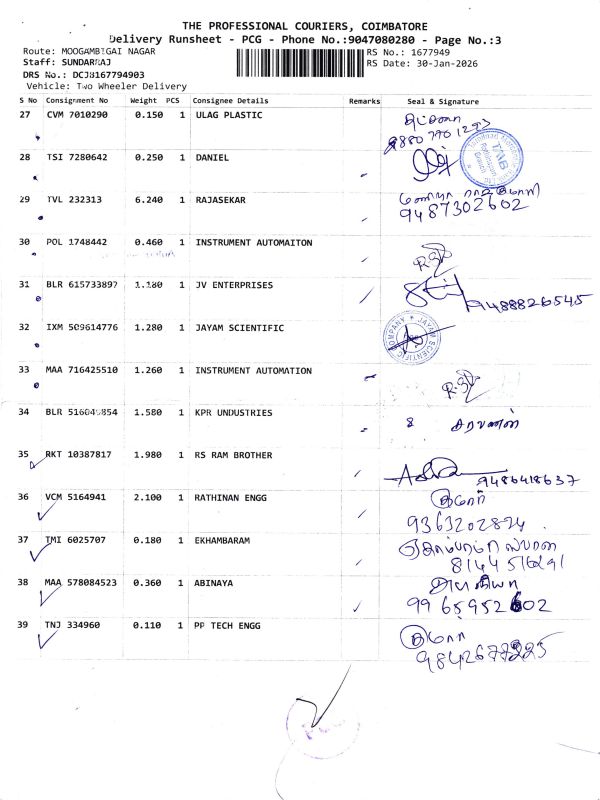 THE PROFESSIONAL COURIERS, COIMBATORE
Delivery Runsheet - PCG - Phone No.:9047080280 - Page No.:3
Route: MOOGAMBIGAI NAGAR
RS No.: 1677949
Staff: SUNDARRAJ
RS Date: 30-Jan-2026
DRS No.: DCJ8167794903
Vehicle: Two Wheeler Delivery
S No Consignment No Weight PCS Consignee Details Remarks Seal & Signature
27 CVM 7010290 0.150 1 ULAG PLASTIC
28 TSI 7280642 0.250 1 DANIEL
29 TVL 232313 6.240 1 RAJASEKAR
9487302602
30 POL 1748442 0.460 1 INSTRUMENT AUTOMAITON
31 BLR 1.180 1 JV ENTERPRISES
9488826545
32 IXM 509614776 1.280 1 JAYAM SCIENTIFIC
JAYAM SCIENTIFIC COMPANY
33 MAA 716425510 1.260 1 INSTRUMENT AUTOMATION
34 BLR 1.580 1 KPR UNDUSTRIES
சரவணன்
35 RKT 10387817 1.980 1 RS RAM BROTHER
9486418637
36 VCM 5164941 2.100 1 RATHINAN ENGG
குமார்
37 TMI 6025707 0.180 1 EKHAMBARAM
38 MAA 578084523 0.360 1 ABINAYA
அபிநயா
9965952602
39 TNJ 334960 0.110 1 PP TECH ENGG
குமார்